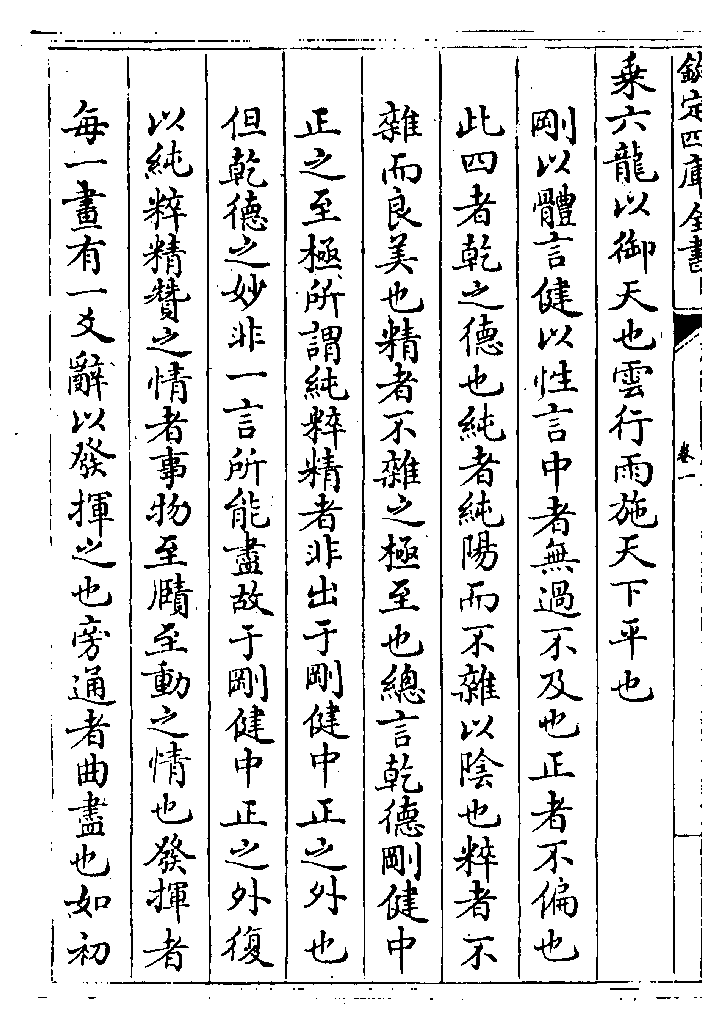 欽定四庫全書
卷一
乗六龍以御天也雲行雨施天下平也
剛以體言健以性言中者無過不及也正者不偏也
此四者乾之德也純者純陽而不雜以陰也粹者不
雜而良美也精者不雜之極至也總言乾德剛健中
正之至極所謂純粹精者非出于剛健中正之外也
但乾德之妙非一言所能盡故于剛健中正之外復
以純粹精贊之情者事物至賾至動之情也發揮者
每一畫有一爻辭以發揮之也旁通者曲盡也如初